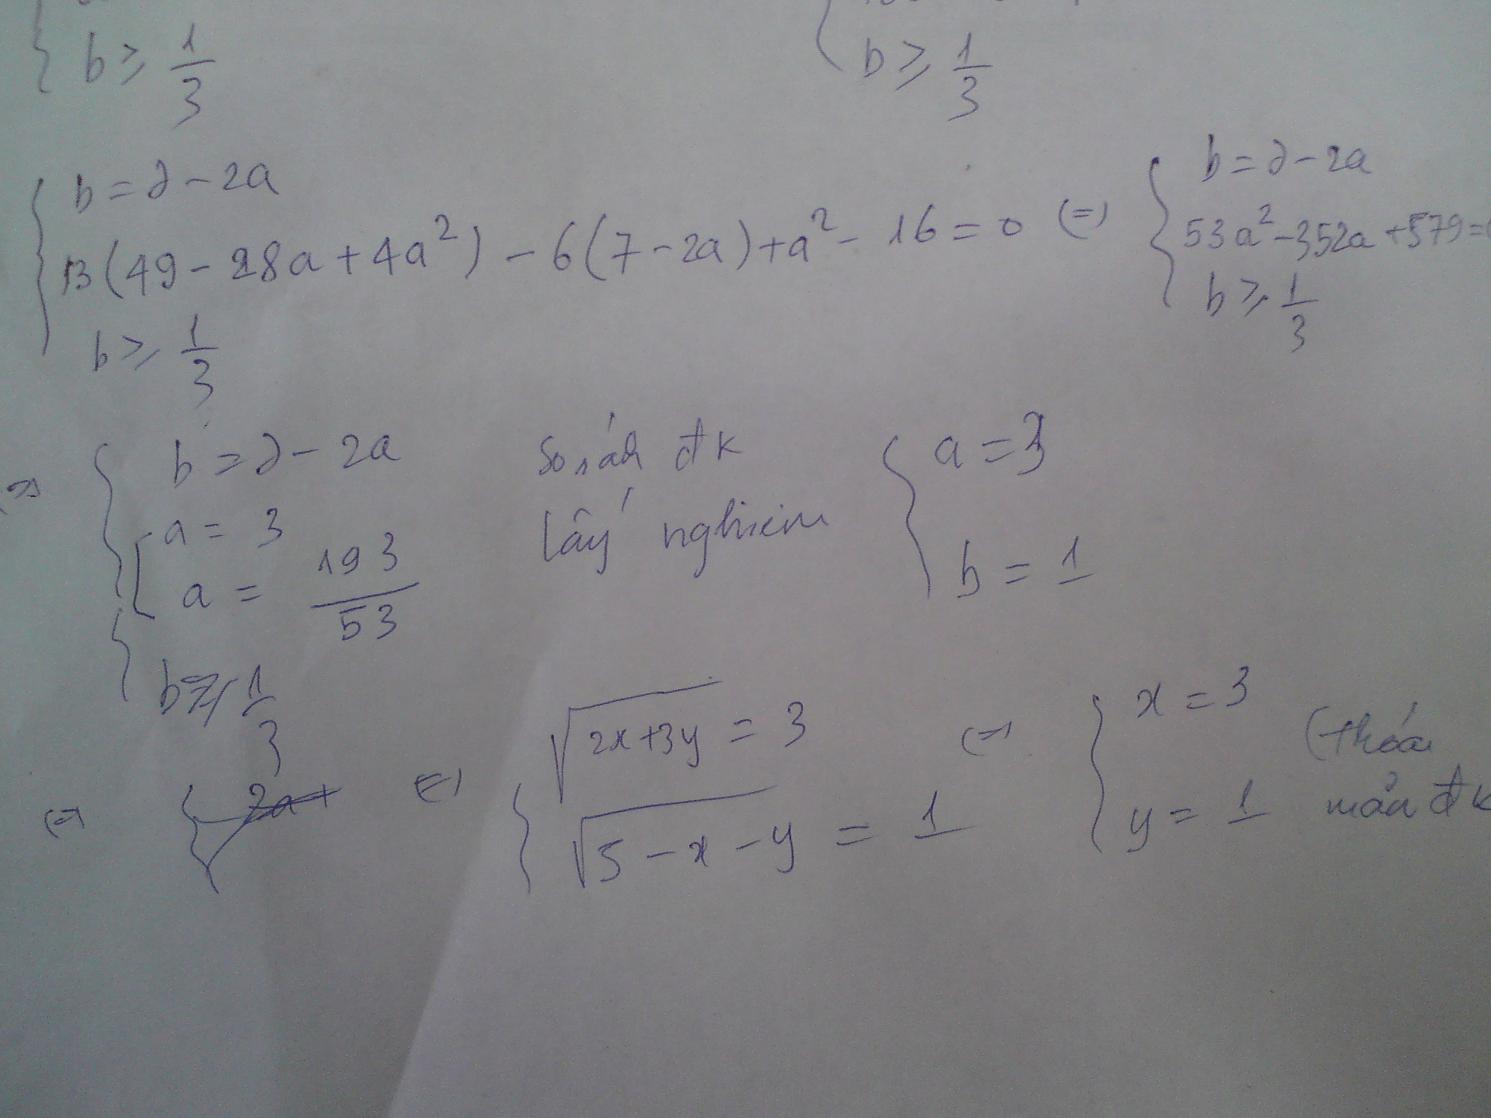 b ≥ 1/3 b ≥ 1/3
{ b = 7 - 2a
13(49 - 28a + 4a²) - 6(7 - 2a) + a² - 16 = 0 (=) { b = 7 - 2a
53a² - 352a + 579 =
b ≥ 1/3 b ≥ 1/3
{ b = 7 - 2a
[ a = 3
a = 193/53
b ≥ 1/3
so sánh đk
lấy nghiệm
{ a = 3
b = 1
(=) (=) { √(2x+3y) = 3
√(5 - x - y) = 1
(=) { x = 3
y = 1
(thỏa
mãn đk